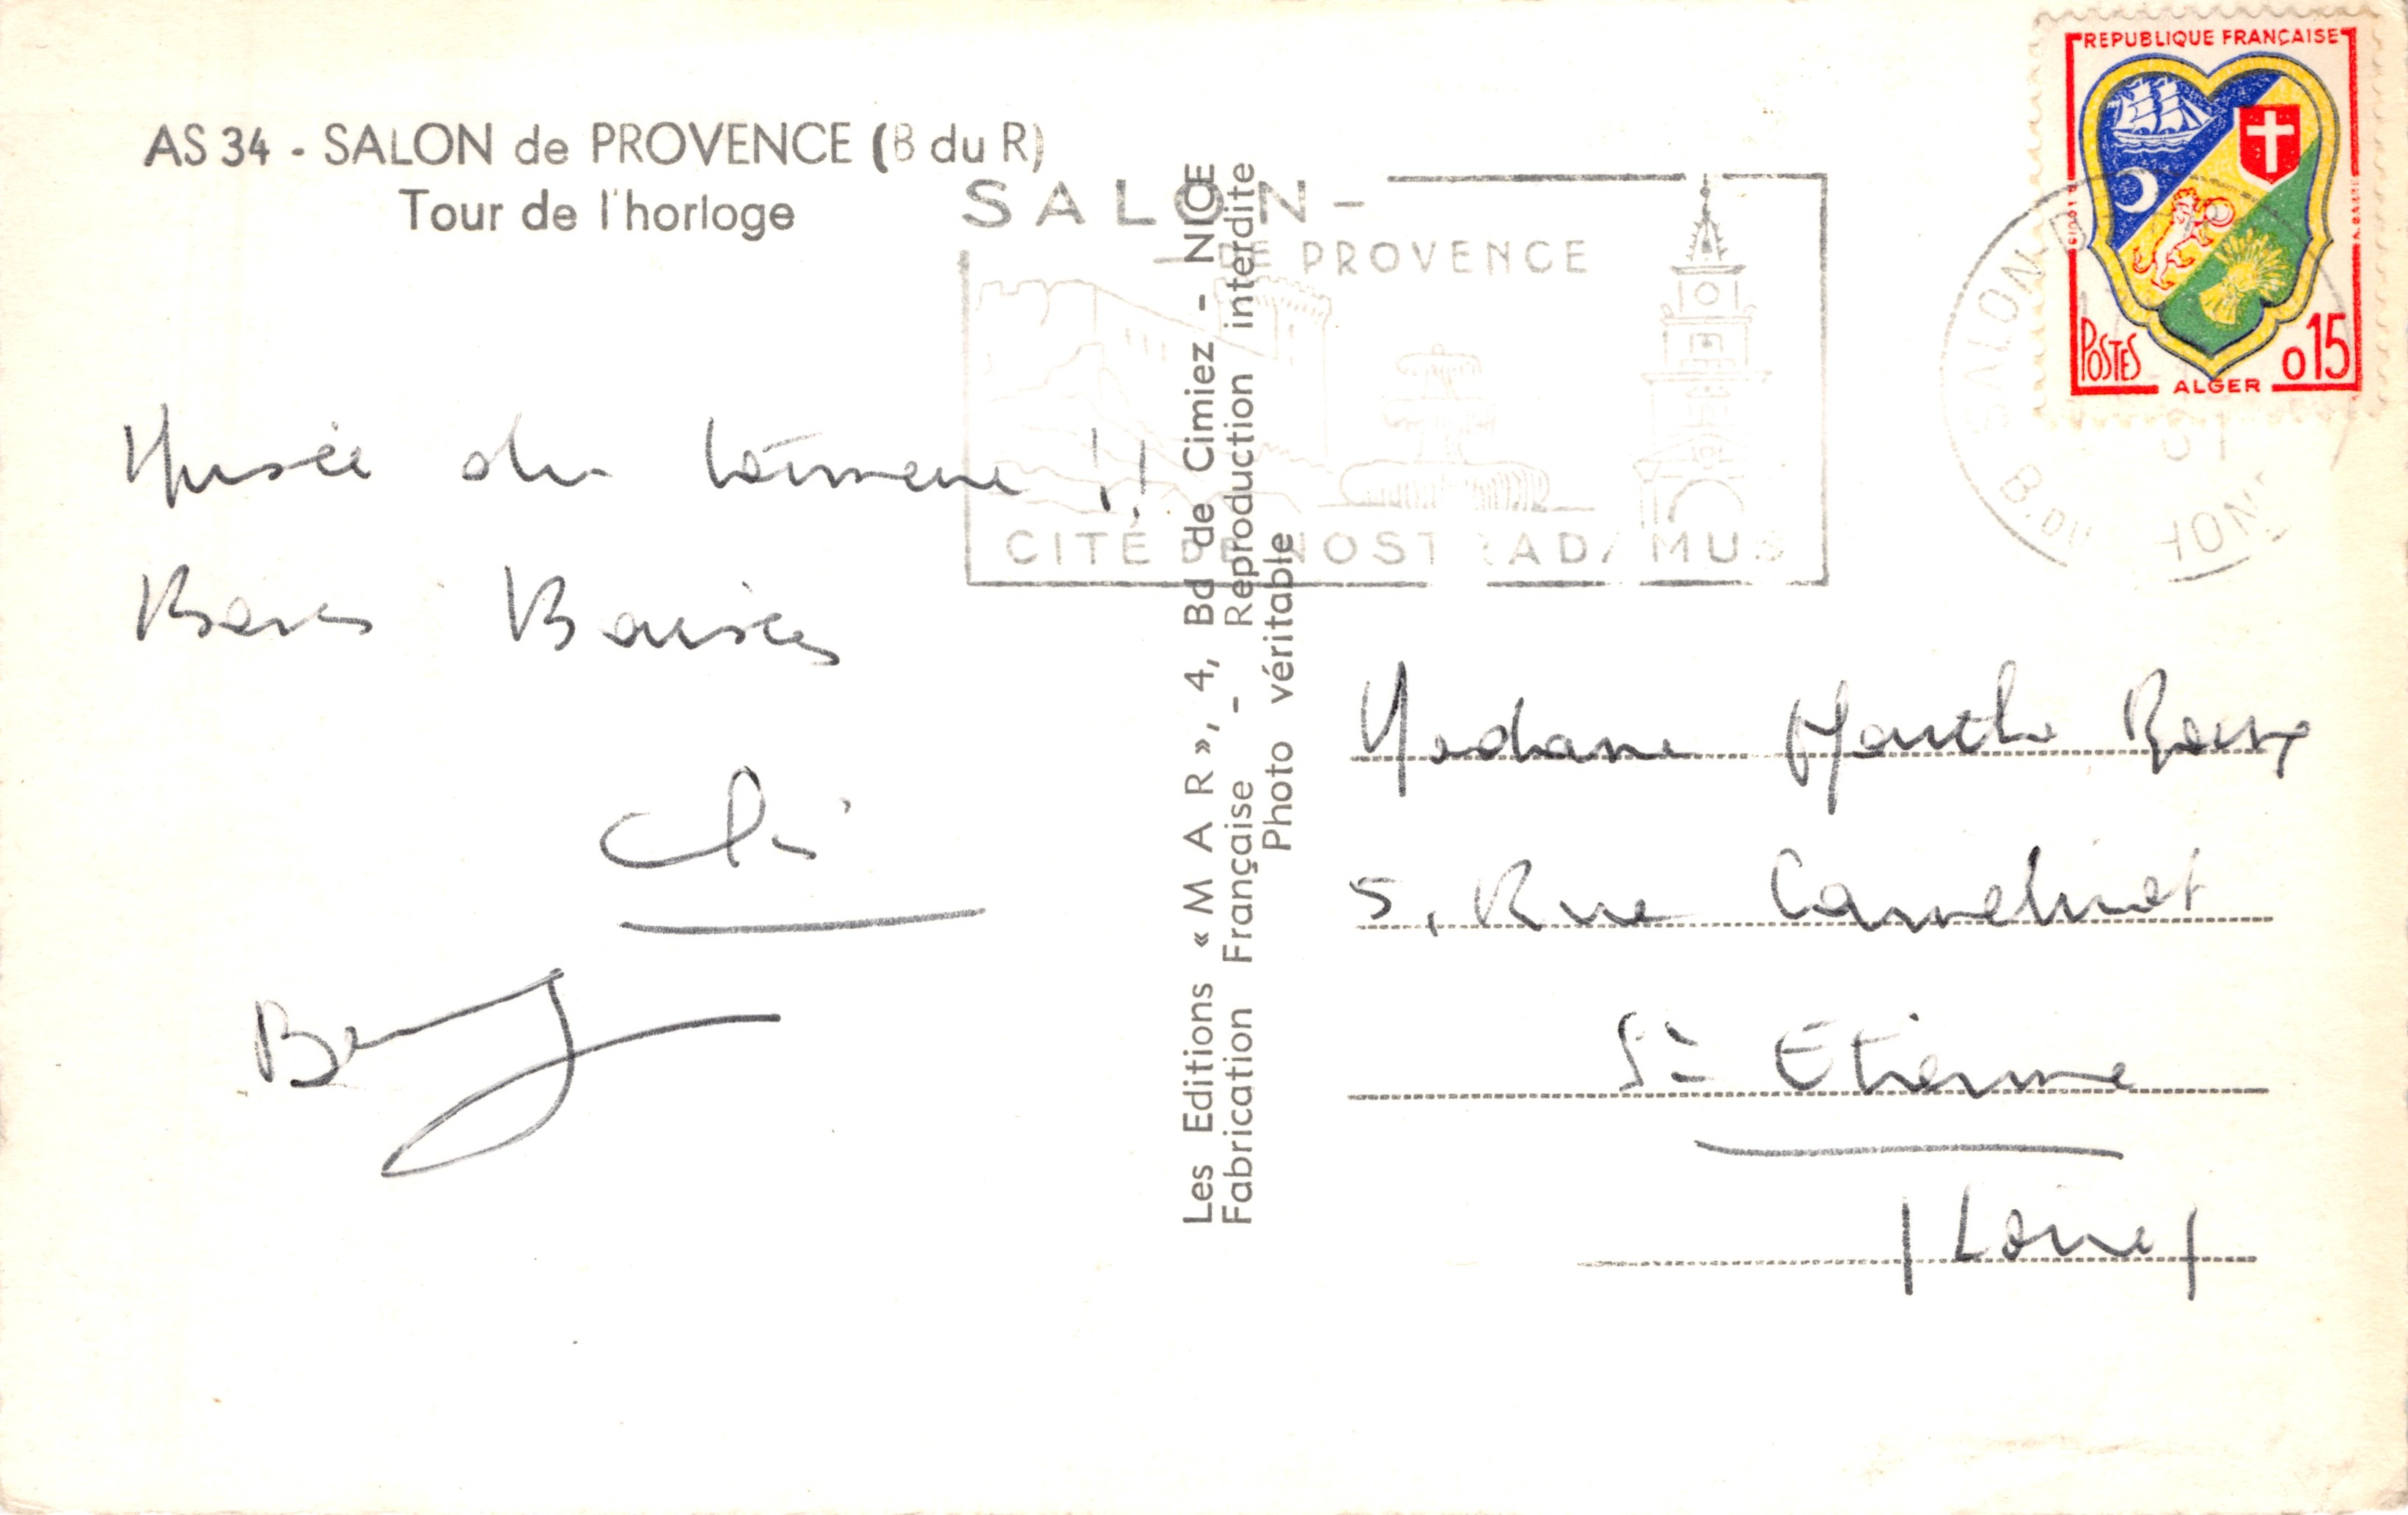 AS 34 - SALON de PROVENCE (B du R)
Tour de l'horloge
Musée du
Bons Baisers
SALON -
DE PROVENCE
CITÉ DE NOSTRADAMUS
Les Editions « M A R », 4, Bd de Cimiez - NICE
Fabrication Française - Reproduction interdite
Photo véritable
REPUBLIQUE FRANÇAISE
POSTES 0,15
ALGER
SALON
B. DU
Madame Marthe Roux
5, Rue
St Etienne
(Loire)